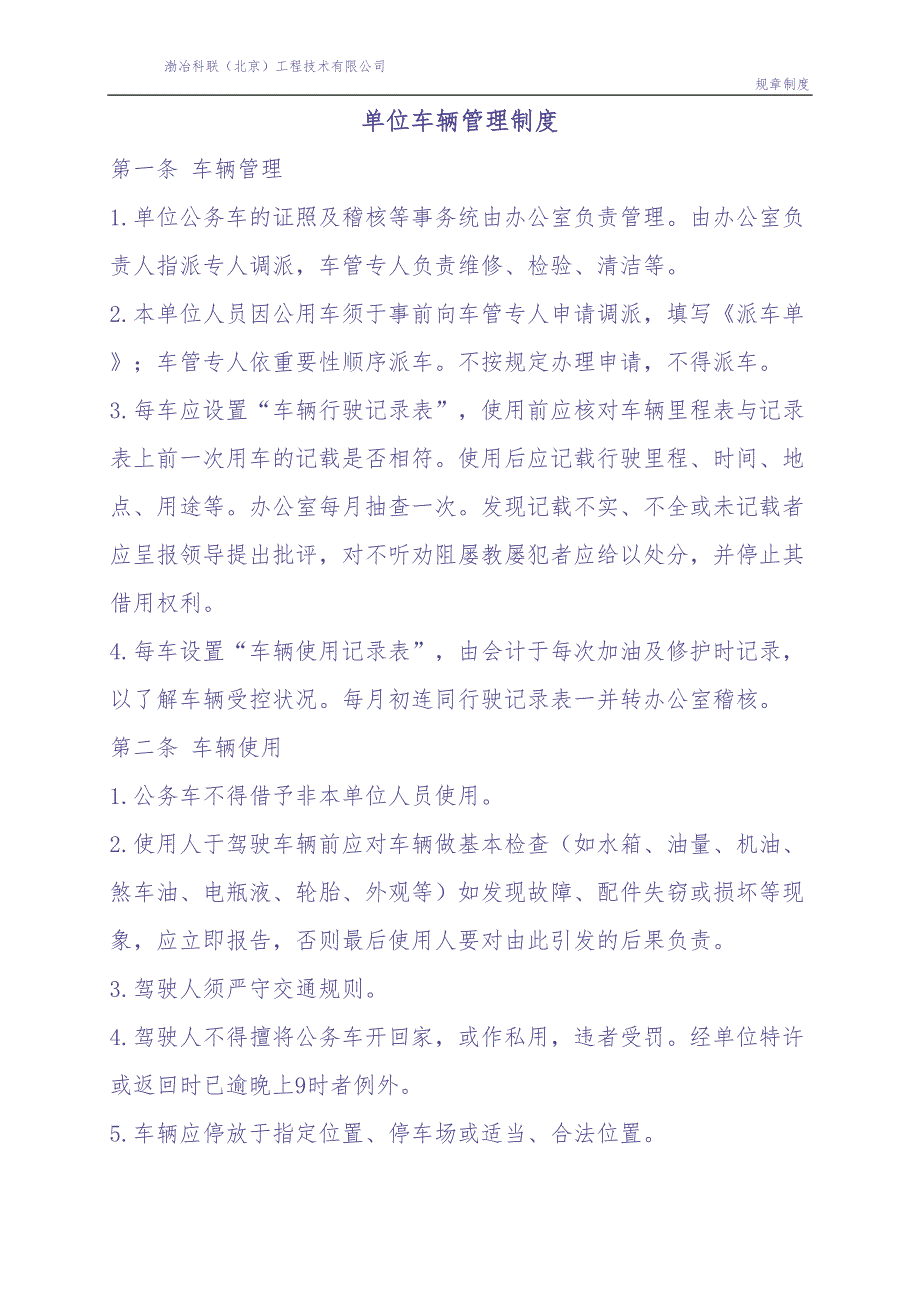 渤冶科联（北京）工程技术有限公司
规章制度
单位车辆管理制度
第一条 车辆管理
1.单位公务车的证照及稽核等事务统由办公室负责管理。由办公室负
责人指派专人调派，车管专人负责维修、检验、清洁等。
2.本单位人员因公用车须于事前向车管专人申请调派，填写《派车单
》；车管专人依重要性顺序派车。不按规定办理申请，不得派车。
3.每车应设置“车辆行驶记录表”，使用前应核对车辆里程表与记录
表上前一次用车的记载是否相符。使用后应记载行驶里程、时间、地
点、用途等。办公室每月抽查一次。发现记载不实、不全或未记载者
应呈报领导提出批评，对不听劝阻屡教屡犯者应给以处分，并停止其
借用权利。
4.每车设置“车辆使用记录表”，由会计于每次加油及修护时记录，
以了解车辆受控状况。每月初连同行驶记录表一并转办公室稽核。
第二条 车辆使用
1.公务车不得借予非本单位人员使用。
2.使用人于驾驶车辆前应对车辆做基本检查（如水箱、油量、机油、
煞车油、电瓶液、轮胎、外观等）如发现故障、配件失窃或损坏等现
象，应立即报告，否则最后使用人要对由此引发的后果负责。
3.驾驶人须严守交通规则。
4.驾驶人不得擅将公务车开回家，或作私用，违者受罚。经单位特许
或返回时已逾晚上9时者例外。
5.车辆应停放于指定位置、停车场或适当、合法位置。